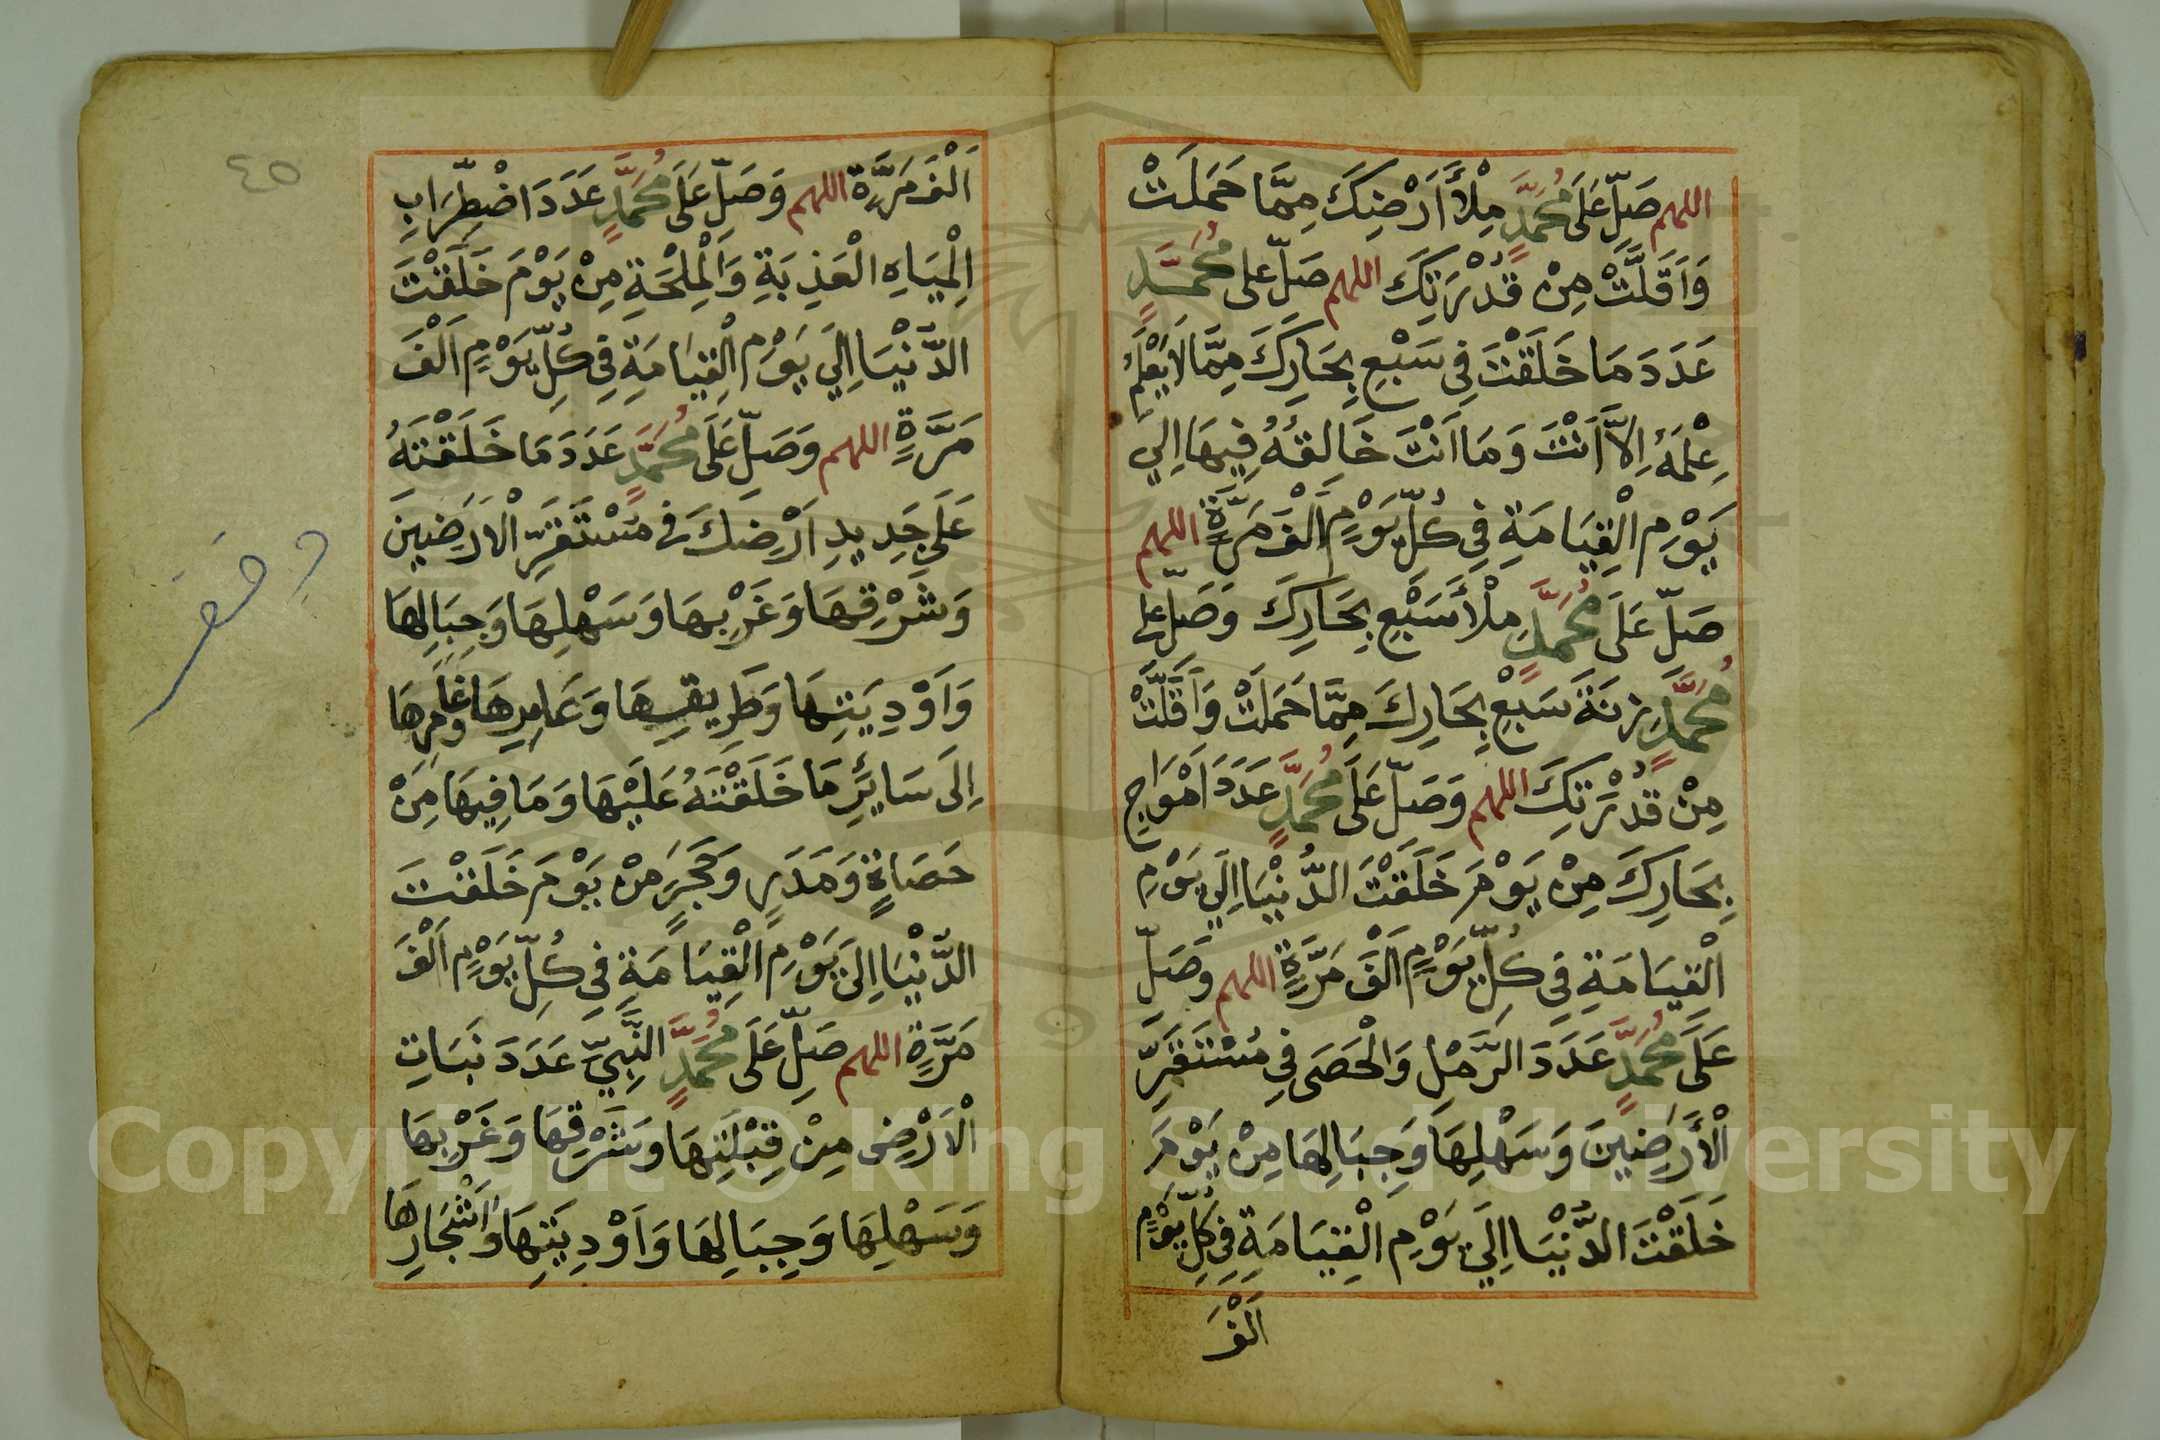 اللهم صَلِّ عَلَى مُحَمَّدٍ مِلْأَ اَرْضِكَ مِمَّا حَمَلَتْ
وَاَقَلَّتْ مِنْ قُدْرَتِكَ اللهم صَلِّ على مُحَمَّدٍ
عَدَدَ مَا خَلَقْتَ فِى سَبْعِ بِحَارِكَ مِمَّا لَا يَعْلَمُ
عِلْمَهُ اِلَّا اَنْتَ وَمَا اَنْتَ خَالِقُهُ فِيهَا اِلَي
يَوْمِ الْقِيَامَةِ فِي كُلِّ يَوْمٍ اَلْفَ مَرَّةٍ اللهم
صَلِّ عَلَى مُحَمَّدٍ مِلْأَ سَبْعِ بِحَارِكَ وَصَلِّ على
مُحَمَّدٍ زِنَةَ سَبْعِ بِحَارِكَ مِمَّا حَمَلَتْ وَاَقَلَّتْ
مِنْ قُدْرَتِكَ اللهم وَصَلِّ عَلَى مُحَمَّدٍ عَدَدَ اَمْوَاجِ
بِحَارِكَ مِنْ يَوْمَ خَلَقْتَ الدُّنْيَا اِلَي يَوْمِ
الْقِيَامَةِ فِي كُلِّ يَوْمٍ اَلْفَ مَرَّةٍ اللهم وَصَلِّ
عَلَى مُحَمَّدٍ عَدَدَ الرَّمْلِ وَالْحَصَى فِي مُسْتَقَرِّ
الْأَرَضِينَ وَسَهْلِهَا وَجِبَالِهَا مِنْ يَوْمَ
خَلَقْتَ الدُّنْيَا اِلَي يَوْمِ الْقِيَامَةِ فِي كُلِّ يَوْمٍ
اَلْفَ
٤٥
اَلْفَ مَرَّةٍ اللهم وَصَلِّ عَلَى مُحَمَّدٍ عَدَدَ اضْطِرَابِ
الْمِيَاهِ الْعَذِبَةِ وَالْمِلْحَةِ مِنْ يَوْمَ خَلَقْتَ
الدُّنْيَا اِلَي يَوْمِ الْقِيَامَةِ فِي كُلِّ يَوْمٍ اَلْفَ
مَرَّةٍ اللهم وَصَلِّ عَلَى مُحَمَّدٍ عَدَدَ مَا خَلَقْتَهُ
عَلَى جَدِيدِ اَرْضِكَ فِى مُسْتَقَرِّ الْاَرَضِينَ
وَشَرْقِهَا وَغَرْبِهَا وَسَهْلِهَا وَجِبَالِهَا
وَاَوْدِيَتِهَا وَطَرِيقِهَا وَعَامِرِهَا وغَامِرِهَا
اِلَى سَائِرِ مَا خَلَقْتَهُ عَلَيْهَا وَمَا فِيهَا مِنْ
حَصَاةٍ وَمَدَرٍ وَحَجَرٍ مِنْ يَوْمَ خَلَقْتَ
الدُّنْيَا اِلَى يَوْمِ الْقِيَامَةِ فِى كُلِّ يَوْمٍ اَلْفَ
مَرَّةٍ اللهم صَلِّ عَلَى مُحَمَّدٍ النَّبِيِّ عَدَدَ نَبَاتِ
الْاَرْضِ مِنْ قِبْلَتِهَا وَشَرْقِهَا وَغَرْبِهَا
وَسَهْلِهَا وَجِبَالِهَا وَاَوْدِيَتِهَا وَاَشْجَارِهَا
Copyright © King Saud University